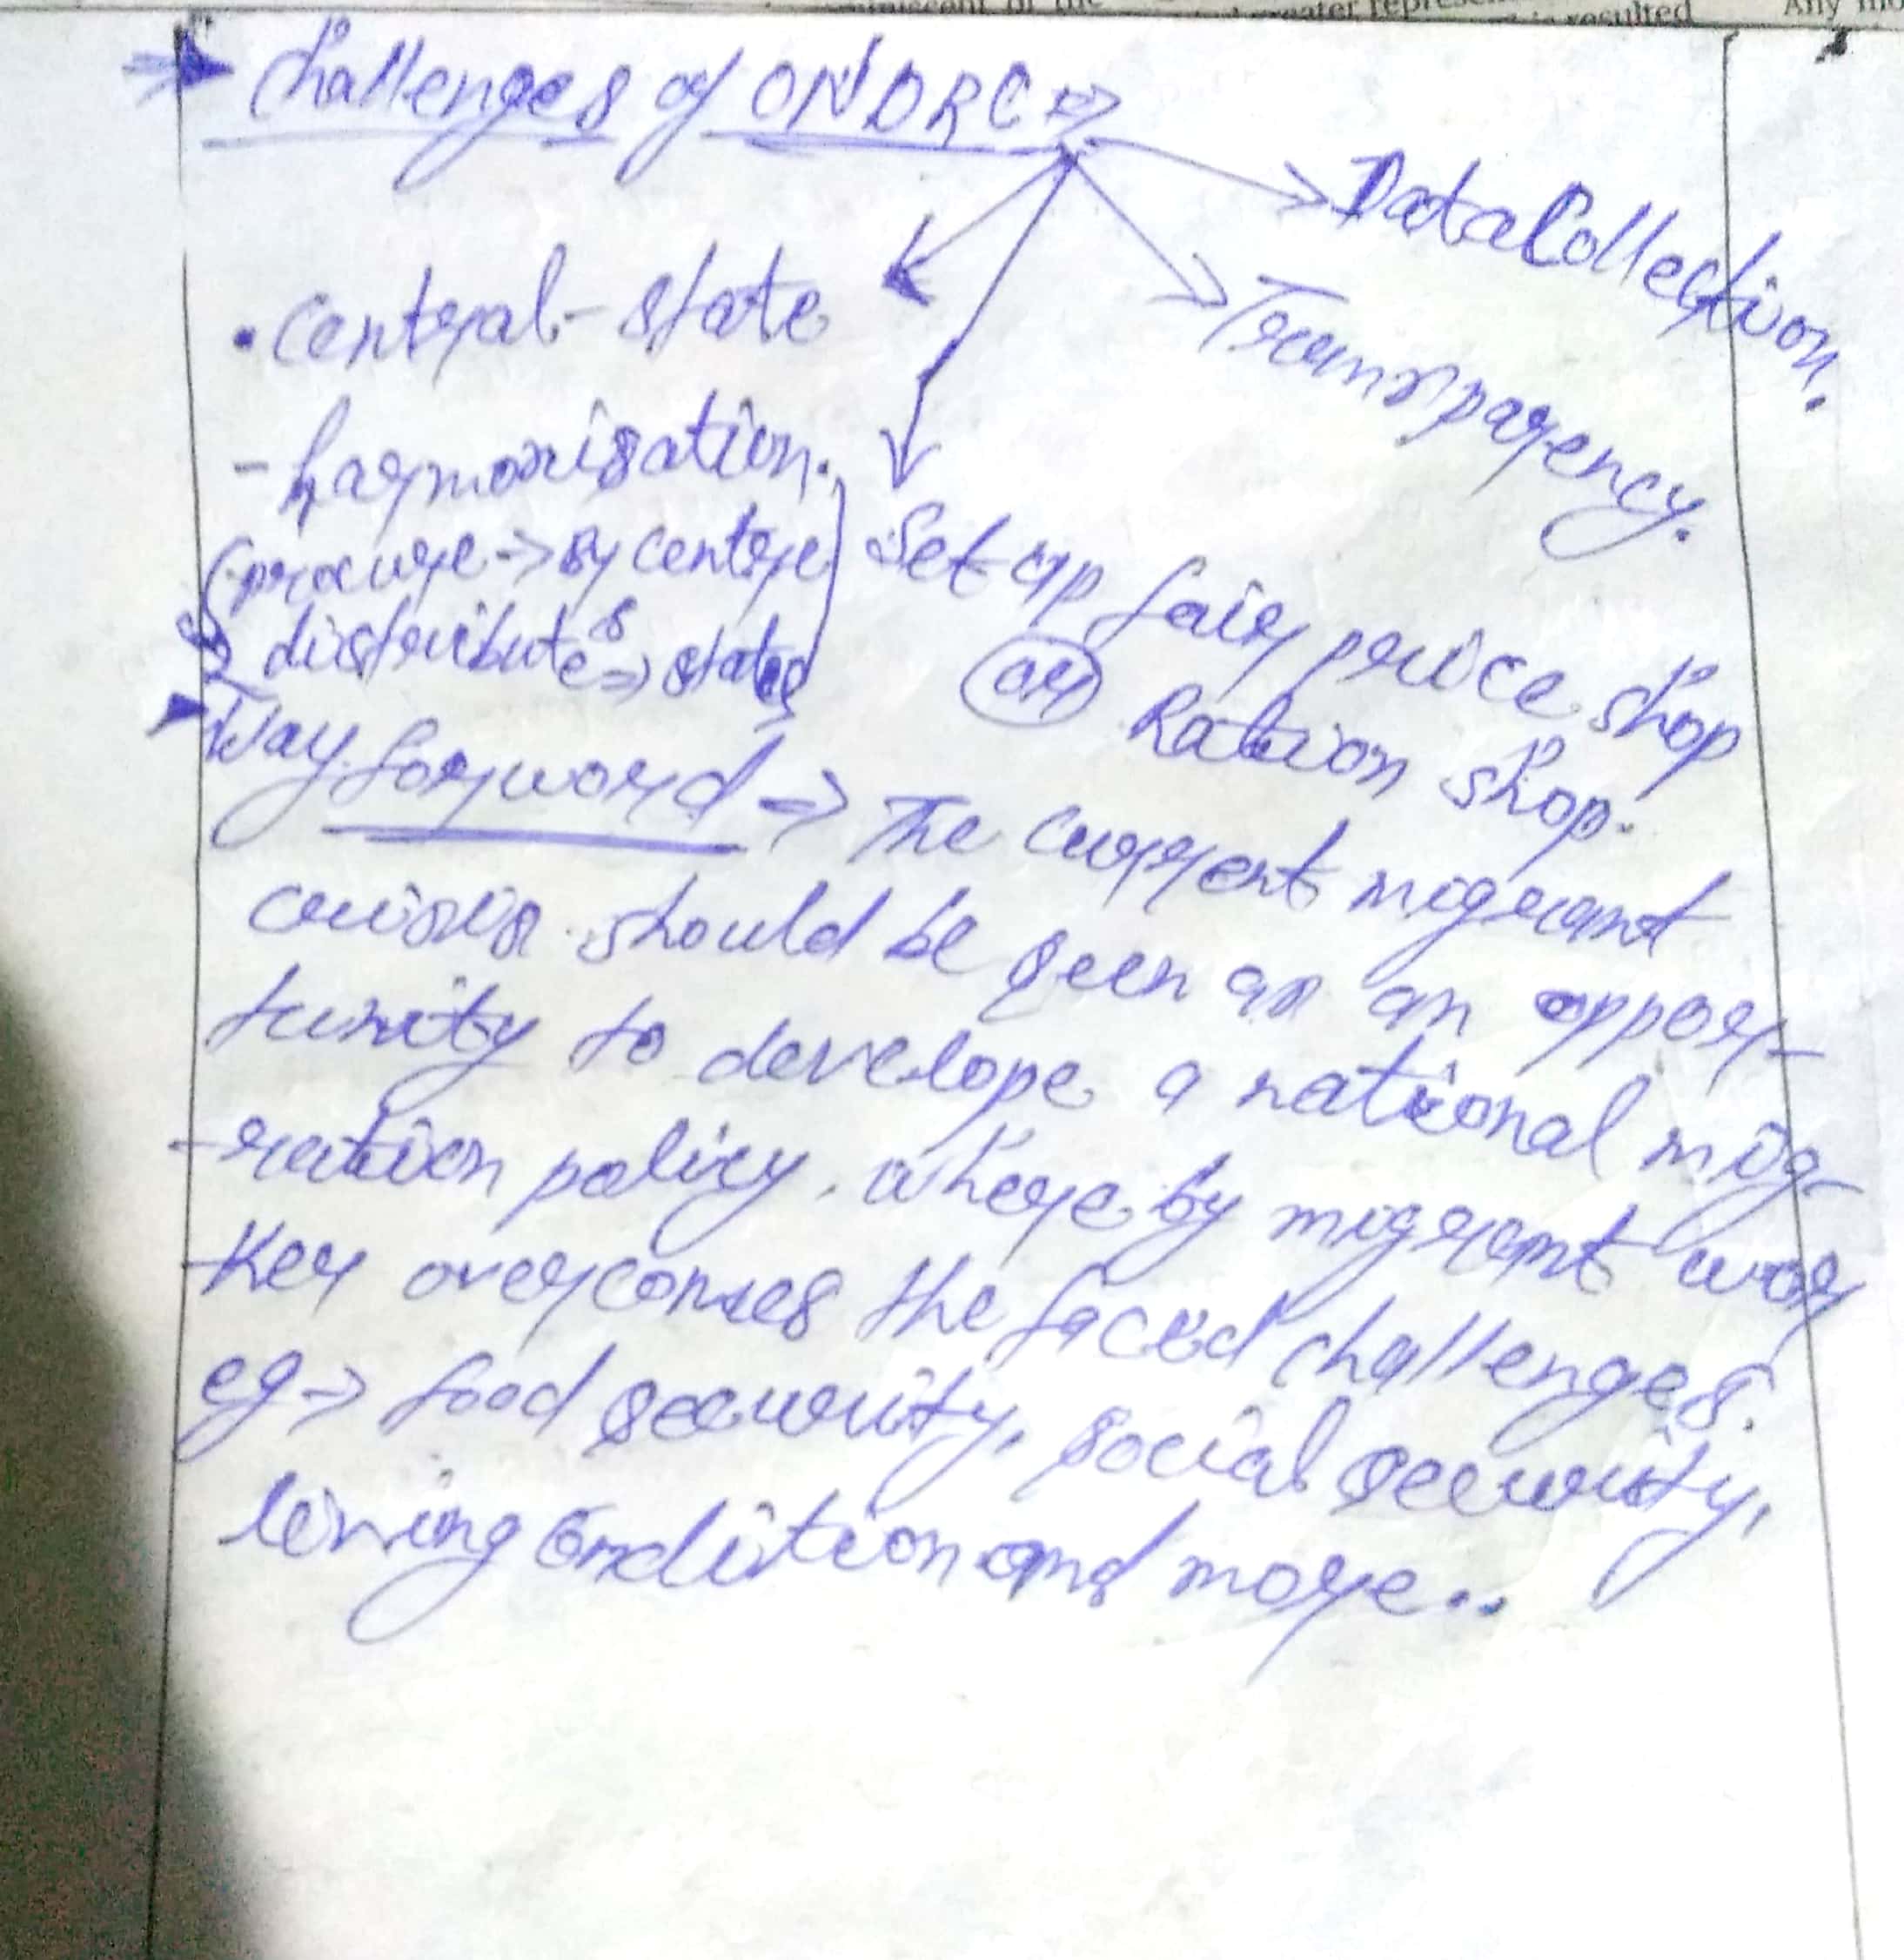 miniscent of the
greater represen
is resulted
Any mo
Challenges of ONDRC ⇒
Data Collection.
Transparency.
• Central-state
- harmonisation.
(procure → by centre
distributes ⇒ states)
Set up fair price shop
or Ration shop.
Way forword ⇒ The current migrant
crisis should be seen as an oppor-
tunity to develope a national mig-
-ration policy. where by migrant wor
-ker overcomes the faced challenges.
eg → food security, social security,
living Condition and more..